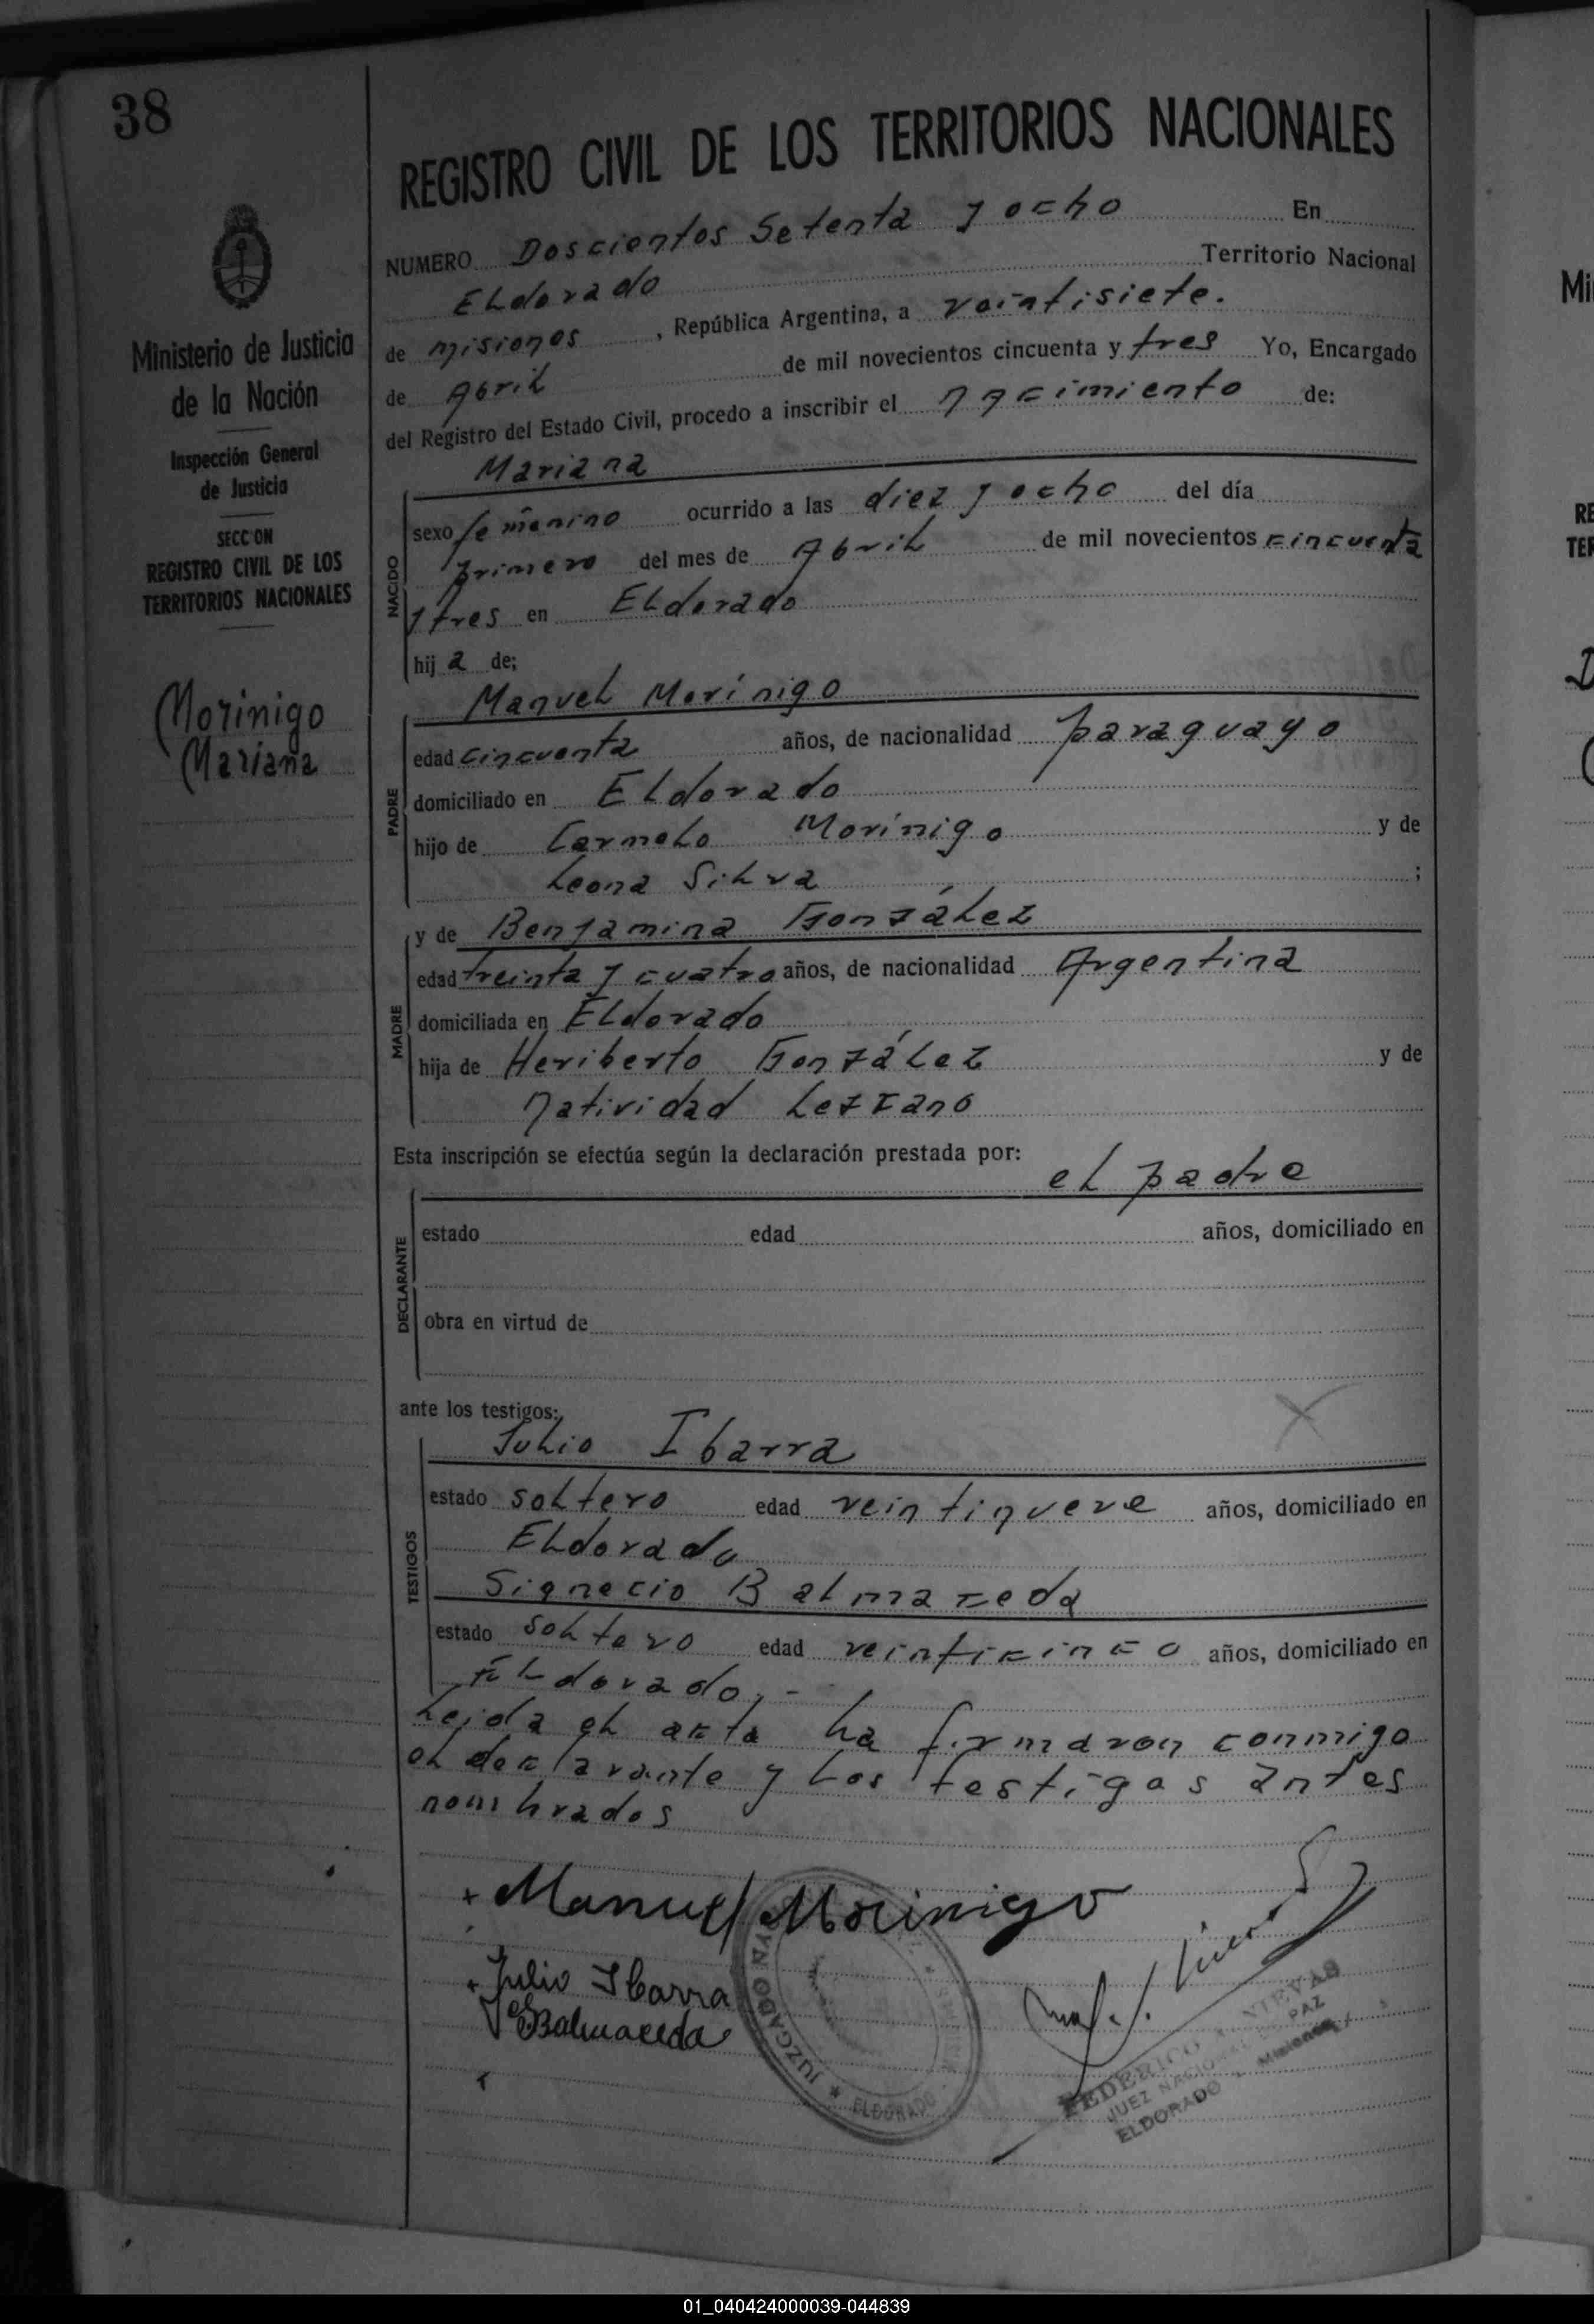 38
REGISTRO CIVIL DE LOS TERRITORIOS NACIONALES
NUMERO Doscientos Setenta y ocho En
Eldorado Territorio Nacional
de Misiones, República Argentina, a veintisiete.
de Abril de mil novecientos cincuenta y tres Yo, Encargado
del Registro del Estado Civil, procedo a inscribir el nacimiento de:
Ministerio de Justicia
de la Nación
Inspección General
de Justicia
SECCION
REGISTRO CIVIL DE LOS
TERRITORIOS NACIONALES
Morinigo
Mariana
NACIDO
Mariana
sexo femenino ocurrido a las diez y ocho del día
primero del mes de Abril de mil novecientos cincuenta
y tres en Eldorado
hija de;
PADRE
Manuel Morínigo
edad cincuenta años, de nacionalidad paraguayo
domiciliado en Eldorado
hijo de Carmelo Morínigo y de
Leona Silva ;
MADRE
y de Benjamina González
edad treinta y cuatro años, de nacionalidad Argentina
domiciliada en Eldorado
hija de Heriberto González y de
Natividad Lezcano
Esta inscripción se efectúa según la declaración prestada por:
el padre
DECLARANTE
estado edad años, domiciliado en
obra en virtud de
ante los testigos:
TESTIGOS
Julio Ibarra
estado soltero edad veintinueve años, domiciliado en
Eldorado
Signecio Balmaceda
estado soltero edad veinticinco años, domiciliado en
Eldorado.-
Leida el acta la firmaron conmigo
el declarante y los testigos antes
nombrados
Manuel Morinigo
Julio Ibarra
S Balmaceda
JUZGADO
ELDORADO
FEDERICO NIEVAS
JUEZ NACIONAL DE PAZ
ELDORADO - Misiones
01_040424000039-044839